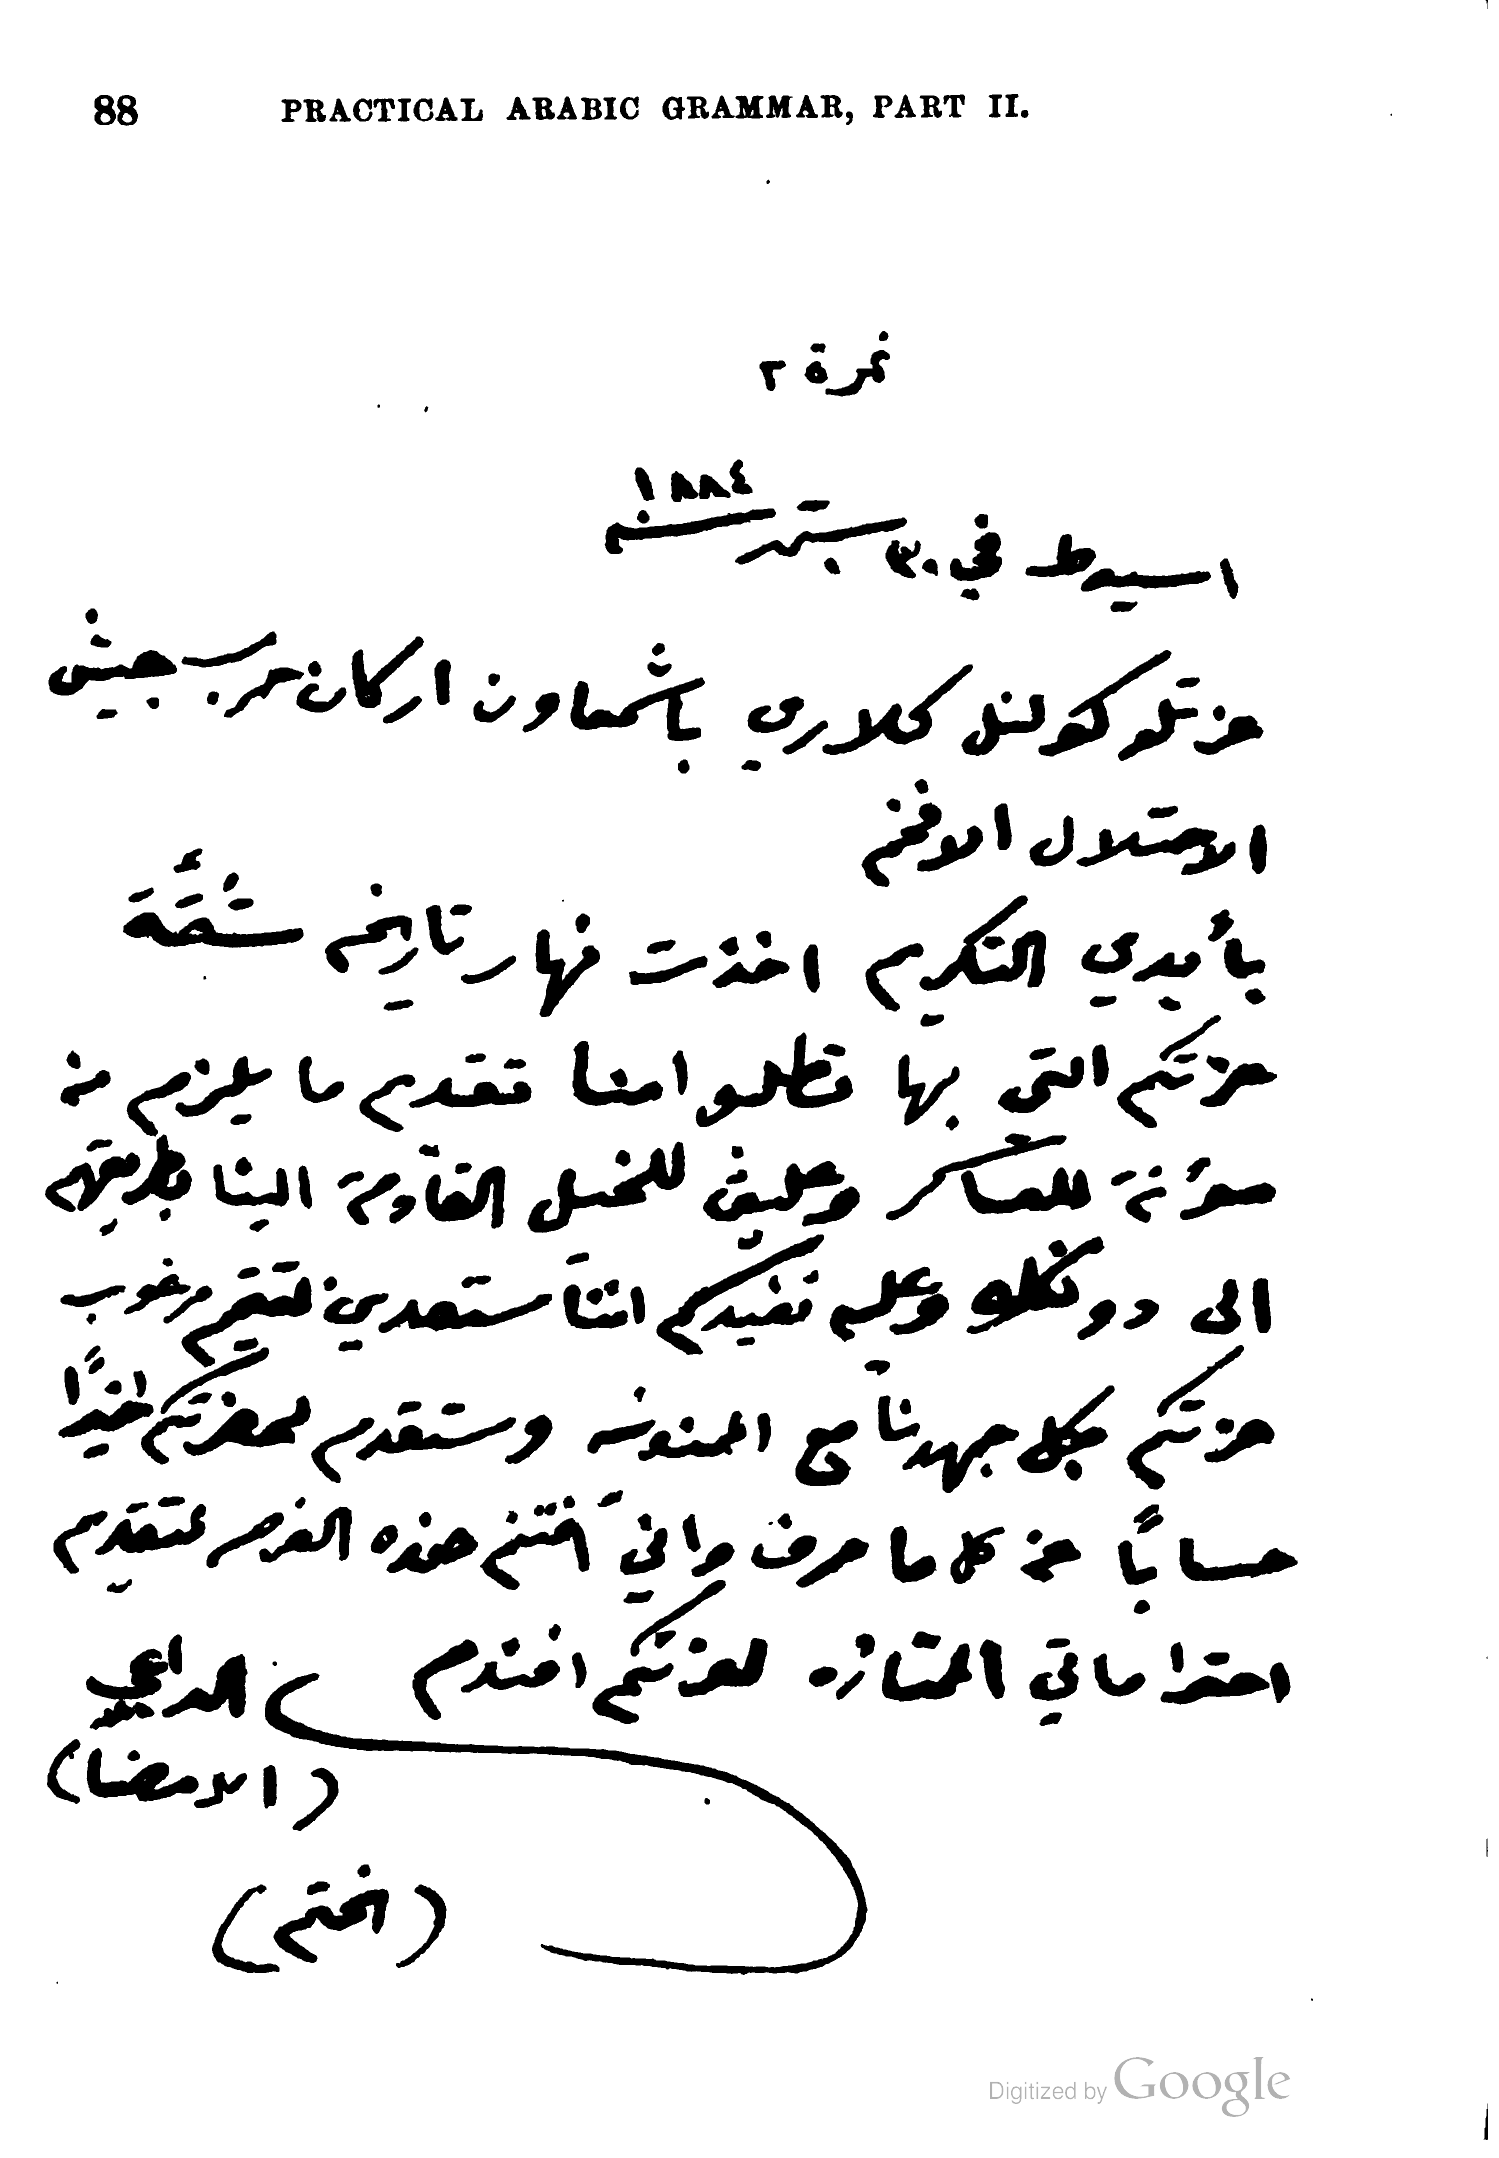 88 PRACTICAL ARABIC GRAMMAR, PART II.
نمرة ٢
اسيوط في ٣٠ سبتمبر سنة ١٨٨٤
عزتلو كولنل كلاري باشمعاون اركان حرب جيش
الاحتلال الافخم
بأيدي التكريم اخذت نهار تاريخه شقّة
عزتكم التي بها تطلبوا منا تقديم ما يلزم من
مؤنة للعساكر وعليق للخيل القادمة الينا بطريقهم
الى دونكله وعليه نفيدكم اننا مستعدين لتتميم مرغوب
عزتكم بكل جهدنا مع الممنونيه وسنقدم لحضرتكم اخيرًا
حسابًا عن كل ما صرف واني اغتنم هذه الفرصه لتقديم
احتراماتي الممتازه لعزتكم افندم الداعي
(الامضا)
(الختم)
Digitized by Google